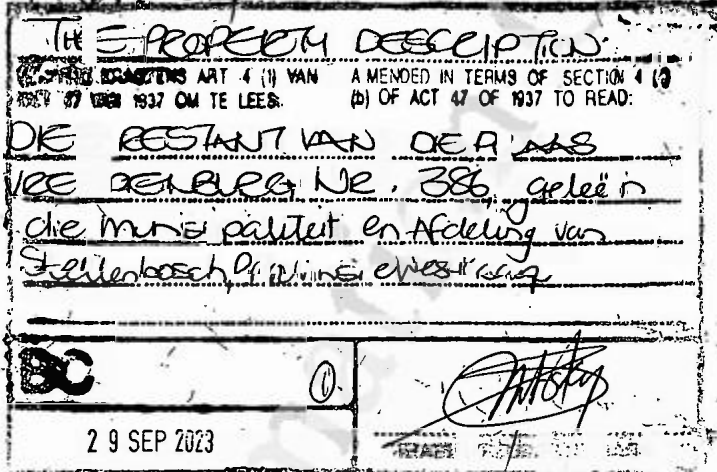 THE PROPERTY DESCRIPTION
ART 4 (1) VAN
1937 OM TE LEES:
AMENDED IN TERMS OF SECTION 4 (1)
(b) OF ACT 47 OF 1937 TO READ:
DIE RESTANT VAN DIE PLAAS
VREDENBURG NR. 386, geleë in
die munisipaliteit en Afdeling van
Stellenbosch,
BC
①
29 SEP 2023